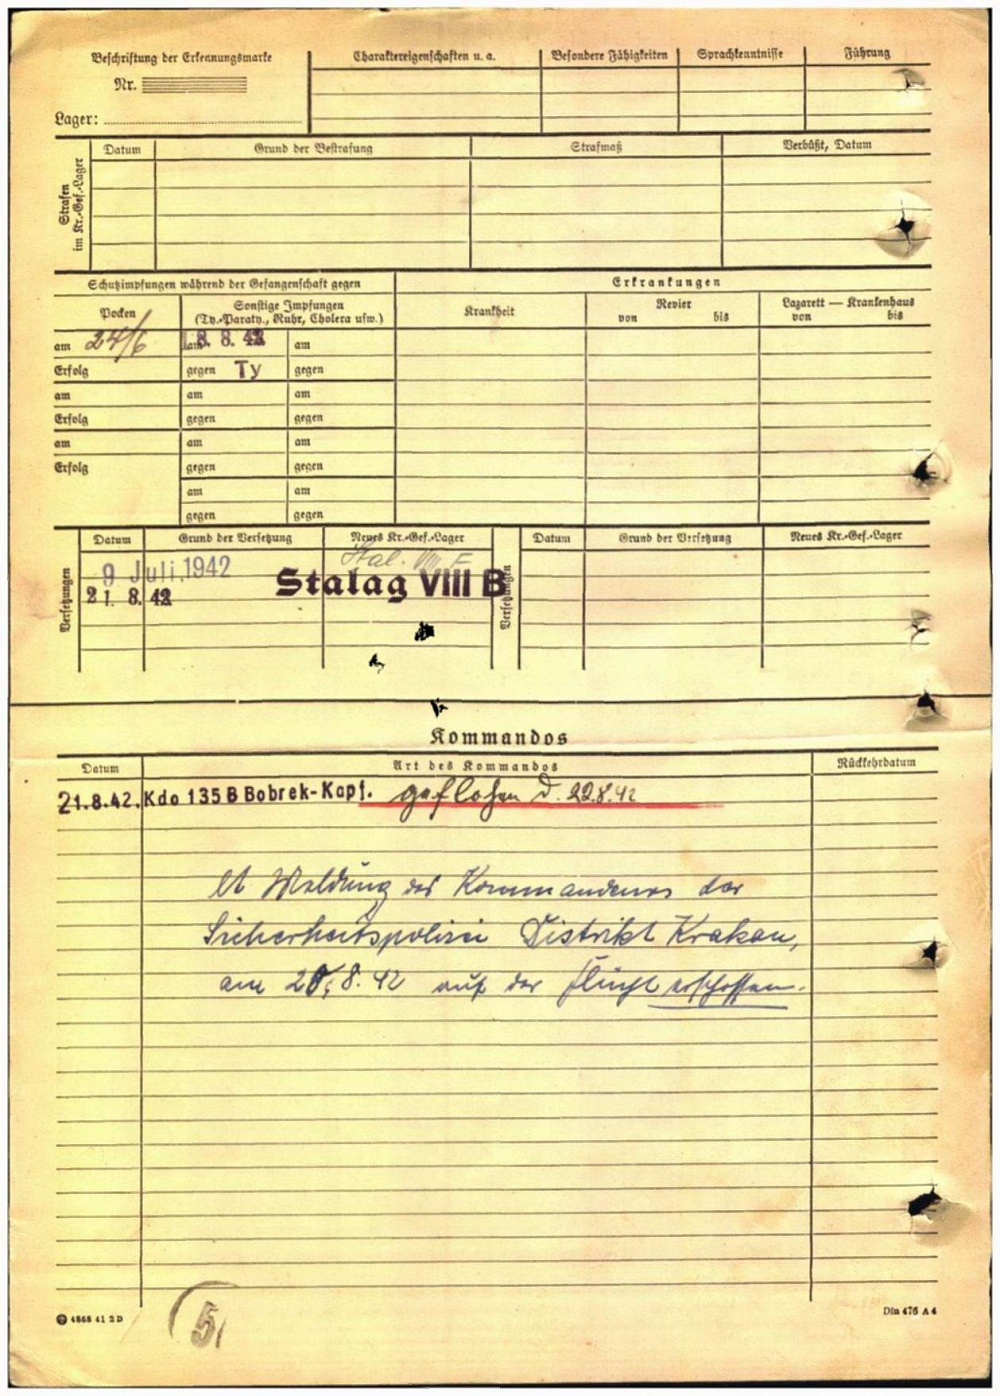 Beschriftung der Erkennungsmarke
Nr.
Lager:
Charaktereigenschaften u. a.
Besondere Fähigkeiten
Sprachkenntnisse
Führung
Strafen
im Kr.-Gef.-Lager
Datum
Grund der Bestrafung
Strafmaß
Verbüßt, Datum
Schutzimpfungen während der Gefangenschaft gegen
Erkrankungen
Pocken
Sonstige Impfungen
(Ty.-Paraty., Ruhr, Cholera usw.)
Krankheit
Revier
von bis
Lazarett — Krankenhaus
von bis
am 24/6 am 8. 8. 42 am
Erfolg gegen Ty gegen
am am am
Erfolg gegen gegen
am am am
Erfolg gegen gegen
am am
gegen gegen
Versetzungen
Datum
Grund der Versetzung
Neues Kr.-Gef.-Lager
Stal. VIII F
9 Juli 1942
21. 8. 42
Stalag VIII B
Versetzungen
Datum
Grund der Versetzung
Neues Kr.-Gef.-Lager
Kommandos
Datum
Art des Kommandos
Rückkehrdatum
21.8.42. Kdo 135 B Bobrek-Kapf. geflohen d. 22.8.42
lt Meldung des Kommandeurs der
Sicherheitspolizei Distrikt Krakau,
am 8.42 auf der Flucht erschossen.
5
4868 41 2 D
Din 476 A 4